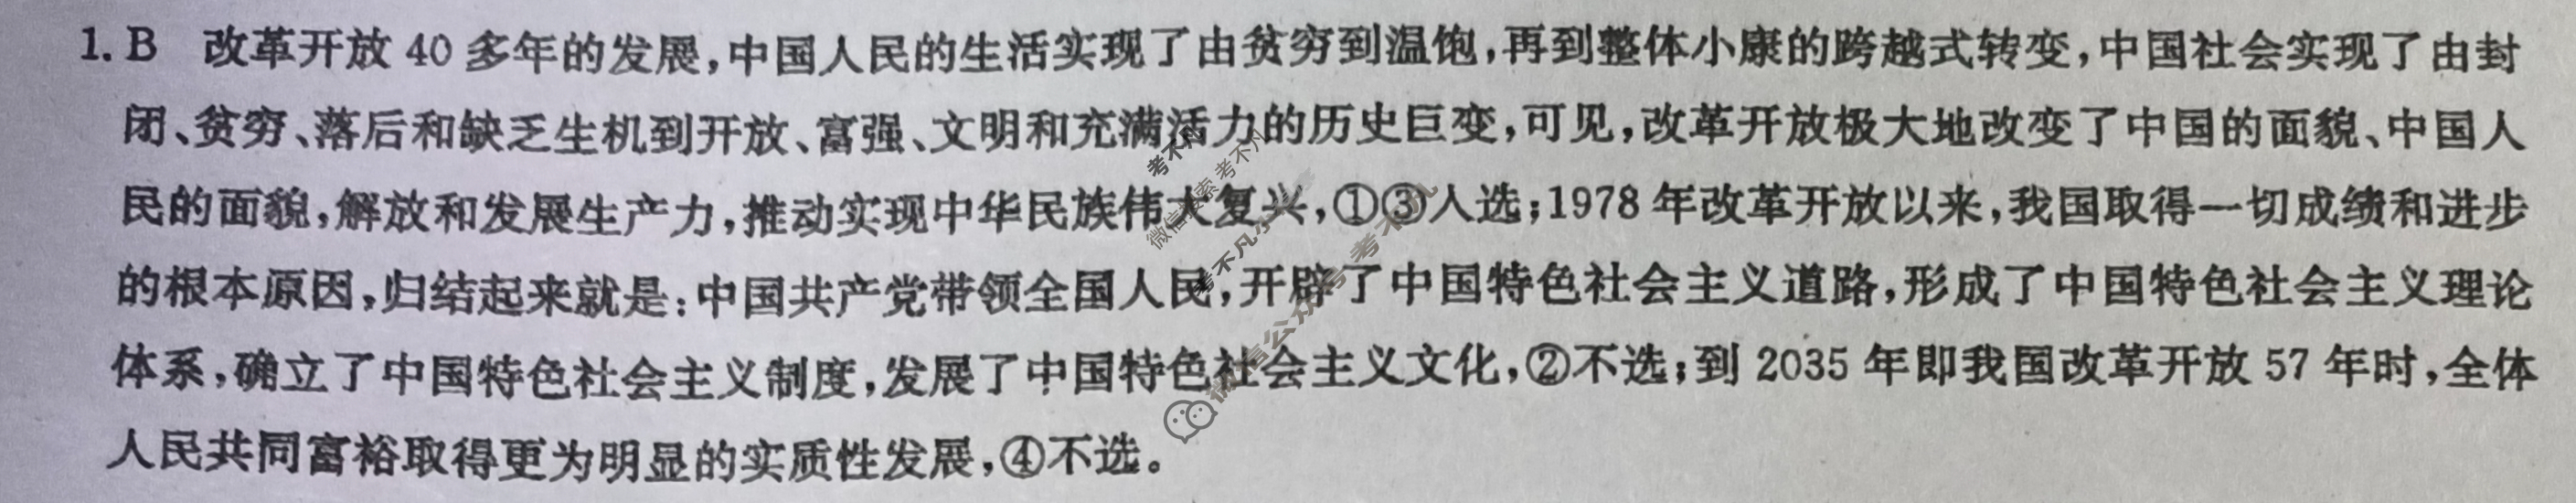 1. B 改革开放 40 多年的发展,中国人民的生活实现了由贫穷到温饱,再到整体小康的跨越式转变,中国社会实现了由封
闭、贫穷、落后和缺乏生机到开放、富强、文明和充满活力的历史巨变,可见,改革开放极大地改变了中国的面貌、中国人
民的面貌,解放和发展生产力,推动实现中华民族伟大复兴,①③入选;1978 年改革开放以来,我国取得一切成绩和进步
的根本原因,归结起来就是:中国共产党带领全国人民,开辟了中国特色社会主义道路,形成了中国特色社会主义理论
体系,确立了中国特色社会主义制度,发展了中国特色社会主义文化,②不选;到 2035 年即我国改革开放 57 年时,全体
人民共同富裕取得更为明显的实质性发展,④不选。